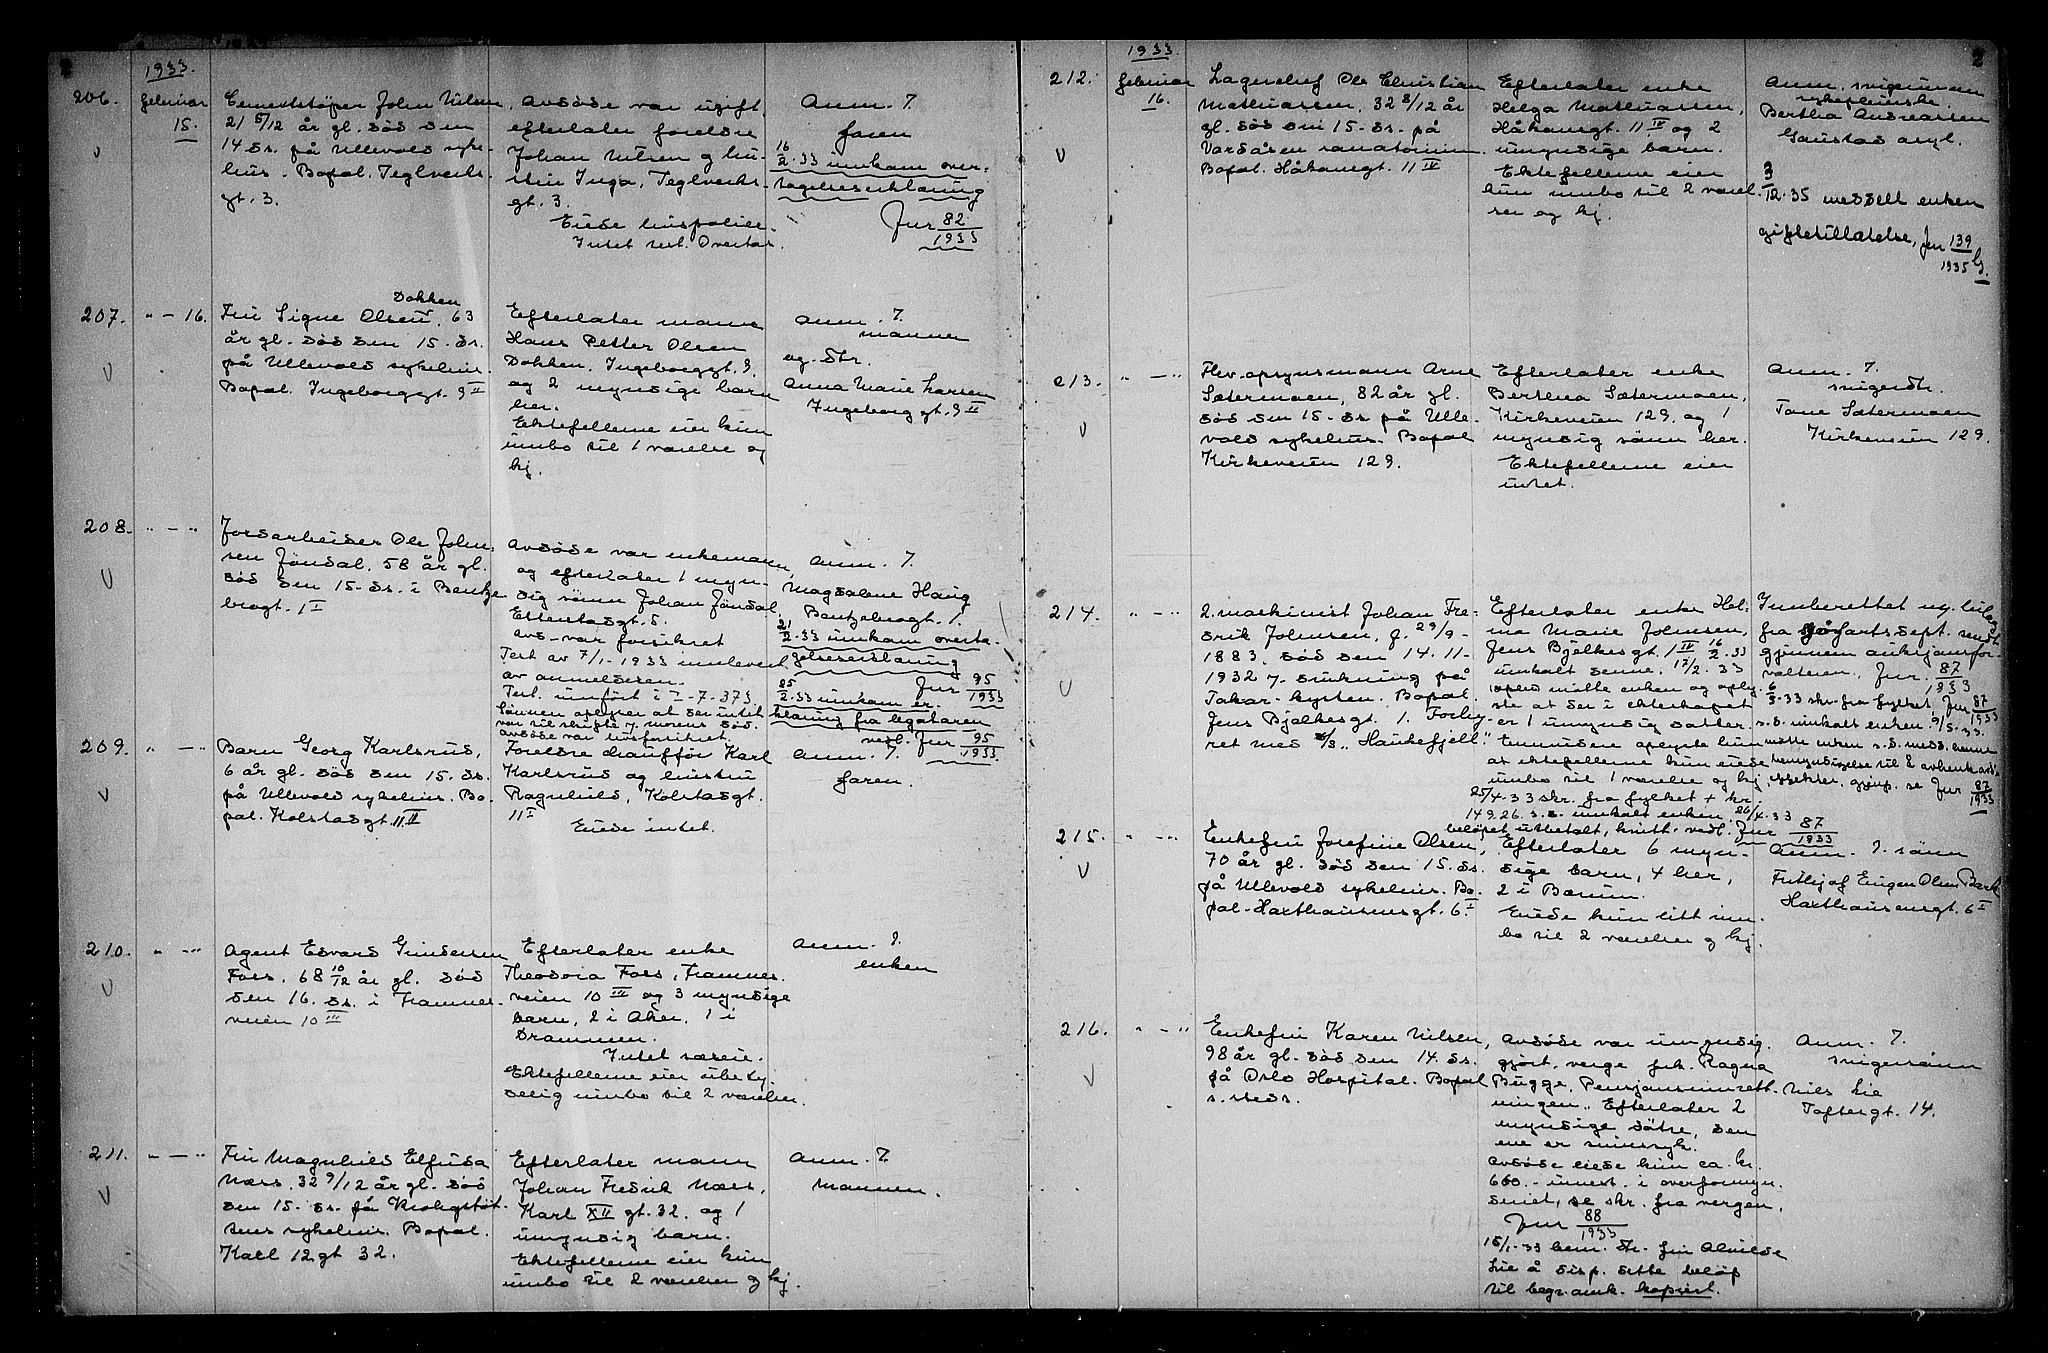 1933.
206.
februar
15.
Cementstøper John Nilsen,
21 5/12 år gl. død den
14 ds. på Ullevold syke-
hus. Bopel. Teglverks-
gt. 3.
Avdøde var ugift,
efterlater foreldre
Johan Nilsen og hu-
stru Inga, Teglverks-
gt. 3.
Eiede livspolice.
Intet test. Overtar.
Anm. 7.
faren
16/2.33 innkom over-
tagelseserklæring
Jnr 82/1933
207.
"-16.
Dokken
Fru Signe Olsen, 63
år gl. død den 15. ds.
på Ullevold sykehus.
Bopel. Ingeborggt. 9 II
Efterlater mann
Hans Petter Olsen
Dokken, Ingeborggt. 9,
og 2 myndige barn
her.
Ektefellene eier kun
innbo til 1 værelse og
kj.
Anm. 7.
mannen
og dtr.
Anna Marie Larsen
Ingeborg gt. 9 II
208.
" - "
Jordarbeider Ole John-
sen Jöndal, 58 år gl.
død den 15. ds. i Bentze
brogt. 1 I
Avdøde var enkemann,
og efterlater 1 myn-
dig sönn Johan Jöndal,
Etterstadgt. 5.
Avd. var forsikret
Test av 7/1-1933 innlevert
av anmelderen.
Test. innført i I-7-373.
Sönnen oplyser at der intet
var til skifte v. morens död.
Avdøde var livsforsikret.
Anm. 7.
Magdalene Haug
Bentzebrogt. 1.
21/2.33 innkom overta-
gelseserklæring
Jnr 95/1933
25/2.33 innkom er-
klæring fra legataren
vedl. Jnr 95/1933
209.
" - "
Barn Georg Karlsrud,
6 år gl. død den 15. ds.
på Ullevold sykehus. Bo-
pel. Kolstadgt. 11 II
Foreldre chauffør Karl
Karlsrud og hustru
Ragnhild, Kolstadgt.
11 I
Eiede intet.
Anm. 7.
faren.
210.
" - "
Agent Edvard Gundersen
Foss, 68 10/12 år gl. død
den 16. ds. i Framnes-
veien 10 III
Efterlater enke
Theodora Foss, Framnes-
veien 10 III og 3 myndige
barn, 2 i Aker, 1 i
Drammen.
Intet særeie.
Ektefellene eier ubety-
delig innbo til 2 værelser.
Anm. 7.
enken
211.
" - "
Fru Magnhild Elfrida
Næss, 32 9/12 år gl. død
den 15. ds. på Krohgstöt-
tens sykehus. Bopel.
Karl 12 gt 32.
Efterlater mann
Johan Fredrik Næss,
Karl XII gt. 32, og 1
umyndig barn.
Ektefellene eier kun
innbo til 2 værelser og kj.
Anm. 7.
mannen.
1933.
212.
februar
16.
Lagerchef Ole Christian
Mathiassen, 32 8/12 år
gl. død den 15. ds. på
Vardåsen sanatorium
Bopel. Håkonsgt. 11 IV
Efterlater enke
Helga Mathiassen,
Håkonsgt. 11 IV og 2
umyndige barn.
Ektefellene eier
kun innbo til 2 værel-
ser og kj.
Anm. svigerinnen
sykepleierske
Bertha Andreassen
Gaustad asyl.
3/12.35 meddelt enken
giftetillatelse, Jnr 139/1935 G.
213.
" - "
Hev. opsynsmann Arne
Sætermoen, 82 år gl.
død den 15. ds. på Ulle-
vold sykehus. Bopel
Kirkeveien 129.
Efterlater enke
Berthea Sætermoen,
Kirkeveien 129, og 1
myndig sönn her.
Ektefellene eier
intet.
Anm. 7.
svigerdtr.
Tone Sætermoen
Kirkeveien 129.
214.
" - "
2. maskinist Johan Fre-
drik Johnsen, f. 29/9-
1883, død den 14.11-
1932 v. drukning på
Dakar-kysten. Bopel
Jens Bjelkesgt. 1. Forhy-
ret med d/s "Haukefjell".
Efterlater enke Hel-
ma Marie Johnsen,
Jens Bjelkes gt 1 IV 16/2.33
innkalt denne. 17/2.33
møtte enken og oply-
ste at der i ekteskapet
er 1 umyndig datter.
Ennvidere oplyste hun
at ektefellene kun eiede
innbo til 1 værelse og kj.
25/4.33 skr. fra fylket + kr.
149.26. s.d. innkalt enken, 26/4.33
beløpet utbetalt, kvitt. vedl. Jnr 87/1933
Innberettet
fra sjøfartsdept. sendt
gjennem
valteren. Jnr. 87/1933
6/5.33 skr. fra fylket Jnr 87/1933
s.d. innkalt enken. 9/5.33.
møtte enken s.d. medd. henne
Jnr 87/1933
215.
" - "
Enkefru Josefine Olsen,
70 år gl. død den 15. ds.
på Ullevold sykehus. Bo-
pel. Haxthausensgt. 6 I
Efterlater 6 myn-
dige barn, 4 her,
2 i Bærum.
Eiede kun litt inn-
bo til 2 værelser og kj.
Anm. 7. sönn
Fritjof Eugen Olsen Bark
Haxthausensgt. 6 I
216.
" - "
Enkefru Karen Nilsen,
98 år gl. død den 14. ds.
på Oslo Hospital. Bopel
s. steds.
Avdøde var umyndig-
gjort, verge frk. Ragna
Bugge, Pensjonsinnrett-
ningen. Efterlater 2
myndige døtre, den
ene er sinnsyk.
Avdøde eiede kun ca. kr.
600.- innest. i overformyn-
deriet, se skr. fra vergen.
Jnr 88/1933
15/1-33 bem. dtr. fru Alvilde
Lie å disp. dette beløp
til begr.omk. kopiert.
Anm. 7.
svigersönn
Nils Lie
Toftesgt. 14.